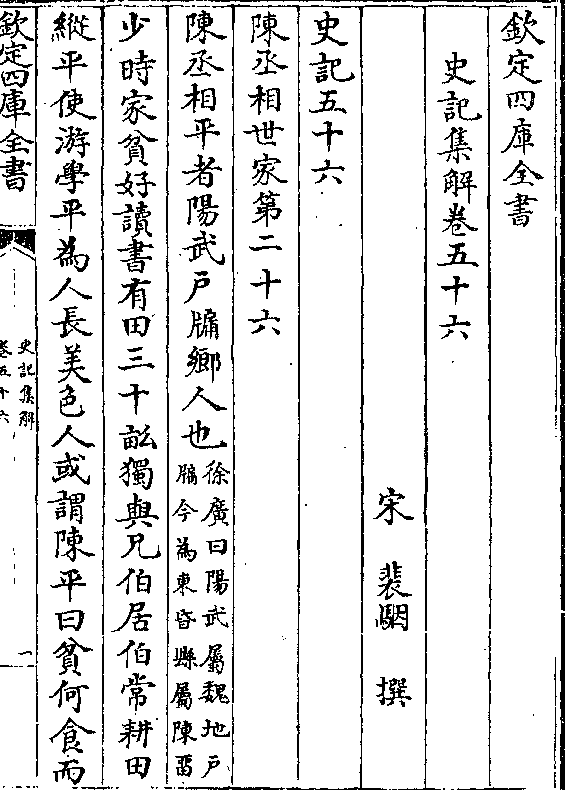 欽定四庫全書
史記集解卷五十六
宋 裴駰 撰
史記五十六
陳丞相世家第二十六
陳丞相平者陽武戶牖鄉人也徐廣曰陽武屬魏地戶
牖今為東昏縣屬陳畱
少時家貧好讀書有田三十畝獨與兄伯居伯常耕田
縱平使游學平為人長美色人或謂陳平曰貧何食而
欽定四庫全書
史記集解
卷五十六
一